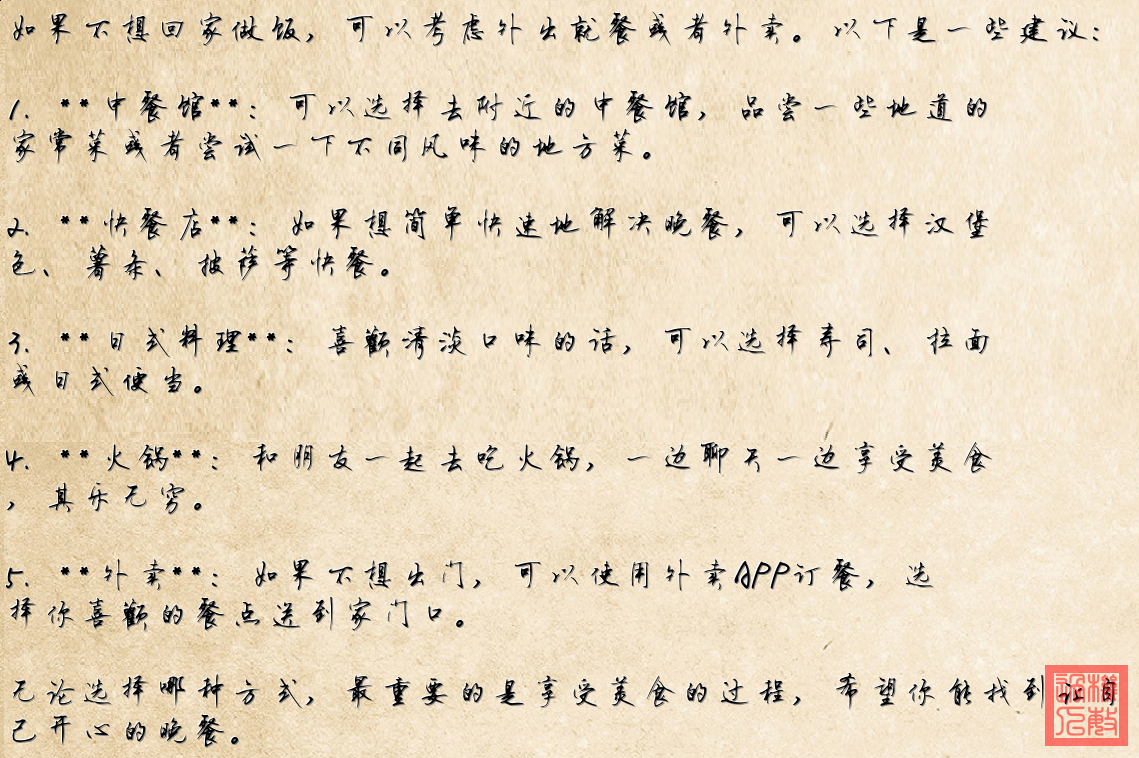 如果不想回家做饭，可以考虑外出就餐或者外卖。以下是一些建议：
1. **中餐馆**：可以选择去附近的中餐馆，品尝一些地道的
家常菜或者尝试一下不同风味的地方菜。
2. **快餐店**：如果想简单快速地解决晚餐，可以选择汉堡
包、薯条、披萨等快餐。
3. **日式料理**：喜欢清淡口味的话，可以选择寿司、拉面
或日式便当。
4. **火锅**：和朋友一起去吃火锅，一边聊天一边享受美食
，其乐无穷。
5. **外卖**：如果不想出门，可以使用外卖APP订餐，选
择你喜欢的餐点送到家门口。
无论选择哪种方式，最重要的是享受美食的过程，希望你能找到让自
己开心的晚餐。